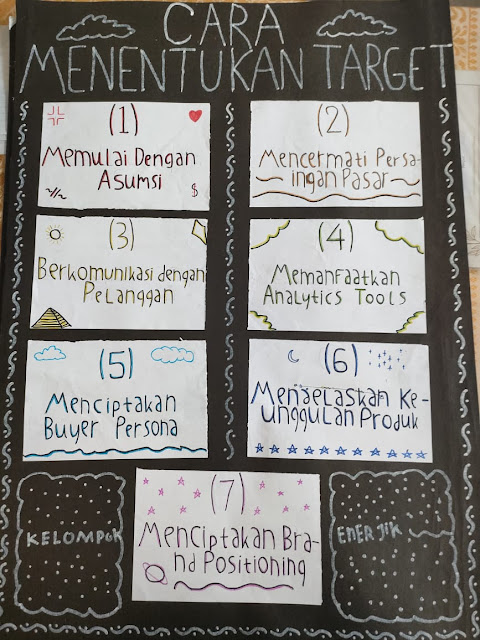 CARA
MENENTUKAN TARGET
(1)
Memulai Dengan
Asumsi
$
(2)
Mencermati Persa-
ingan Pasar
(3)
Berkomunikasi dengan
Pelanggan
(4)
Memanfaatkan
Analytics Tools
(5)
Menciptakan
Buyer Persona
(6)
Menjelaskan Ke-
unggulan Produk
(7)
Menciptakan Bra-
nd Positioning
KELOMPOK
ENERJIK